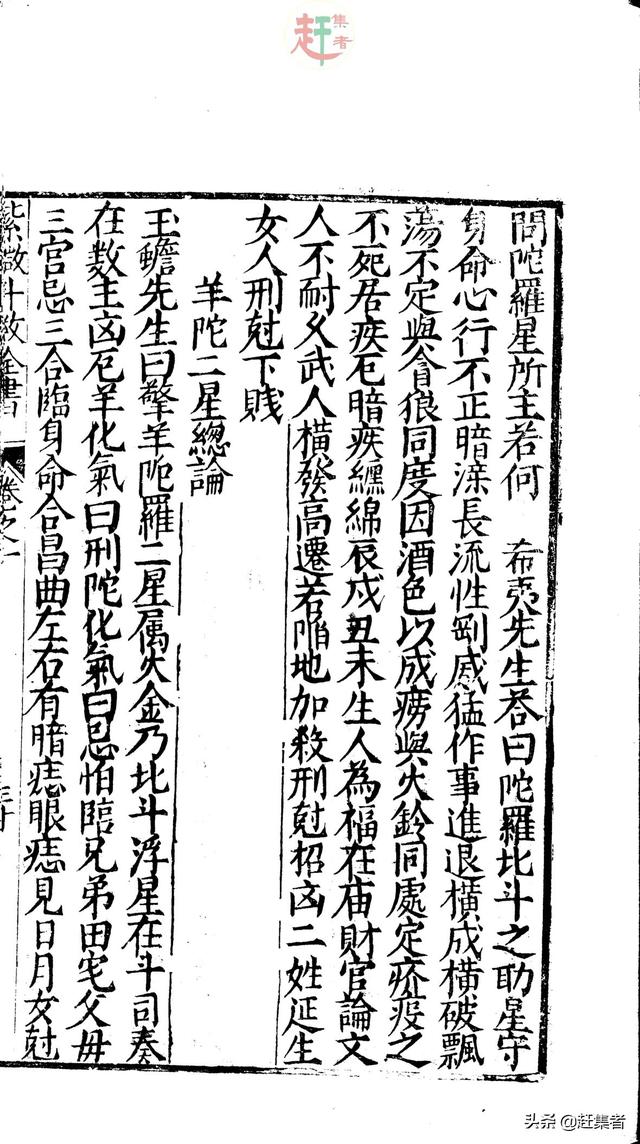 赶集者
問陀羅星所主若何　希夷先生荅曰陀羅北斗之助星守
身命心行不正暗淚長流性剛威猛作事進退橫成橫破飄
蕩不定與貪狼同度因酒色以成癆與火鈴同處定疥疫之
不死居疾厄暗疾纏綿辰戍丑未生人為福在庙財官論文
人不耐久武人橫發高遷若陷地加殺刑尅招凶二姓延生
女人刑尅下賎
羊陀二星總論
玉蟾先生曰擎羊陀羅二星属火金乃北斗浮星在斗司奏
在数主凶厄羊化氣曰刑陀化氣曰忌怕臨兄弟田宅父母
三宫忌三合臨身命合昌曲左右有暗痣眼痣見日月女尅
紫微斗数全書
卷之一
三十
头条@赶集者